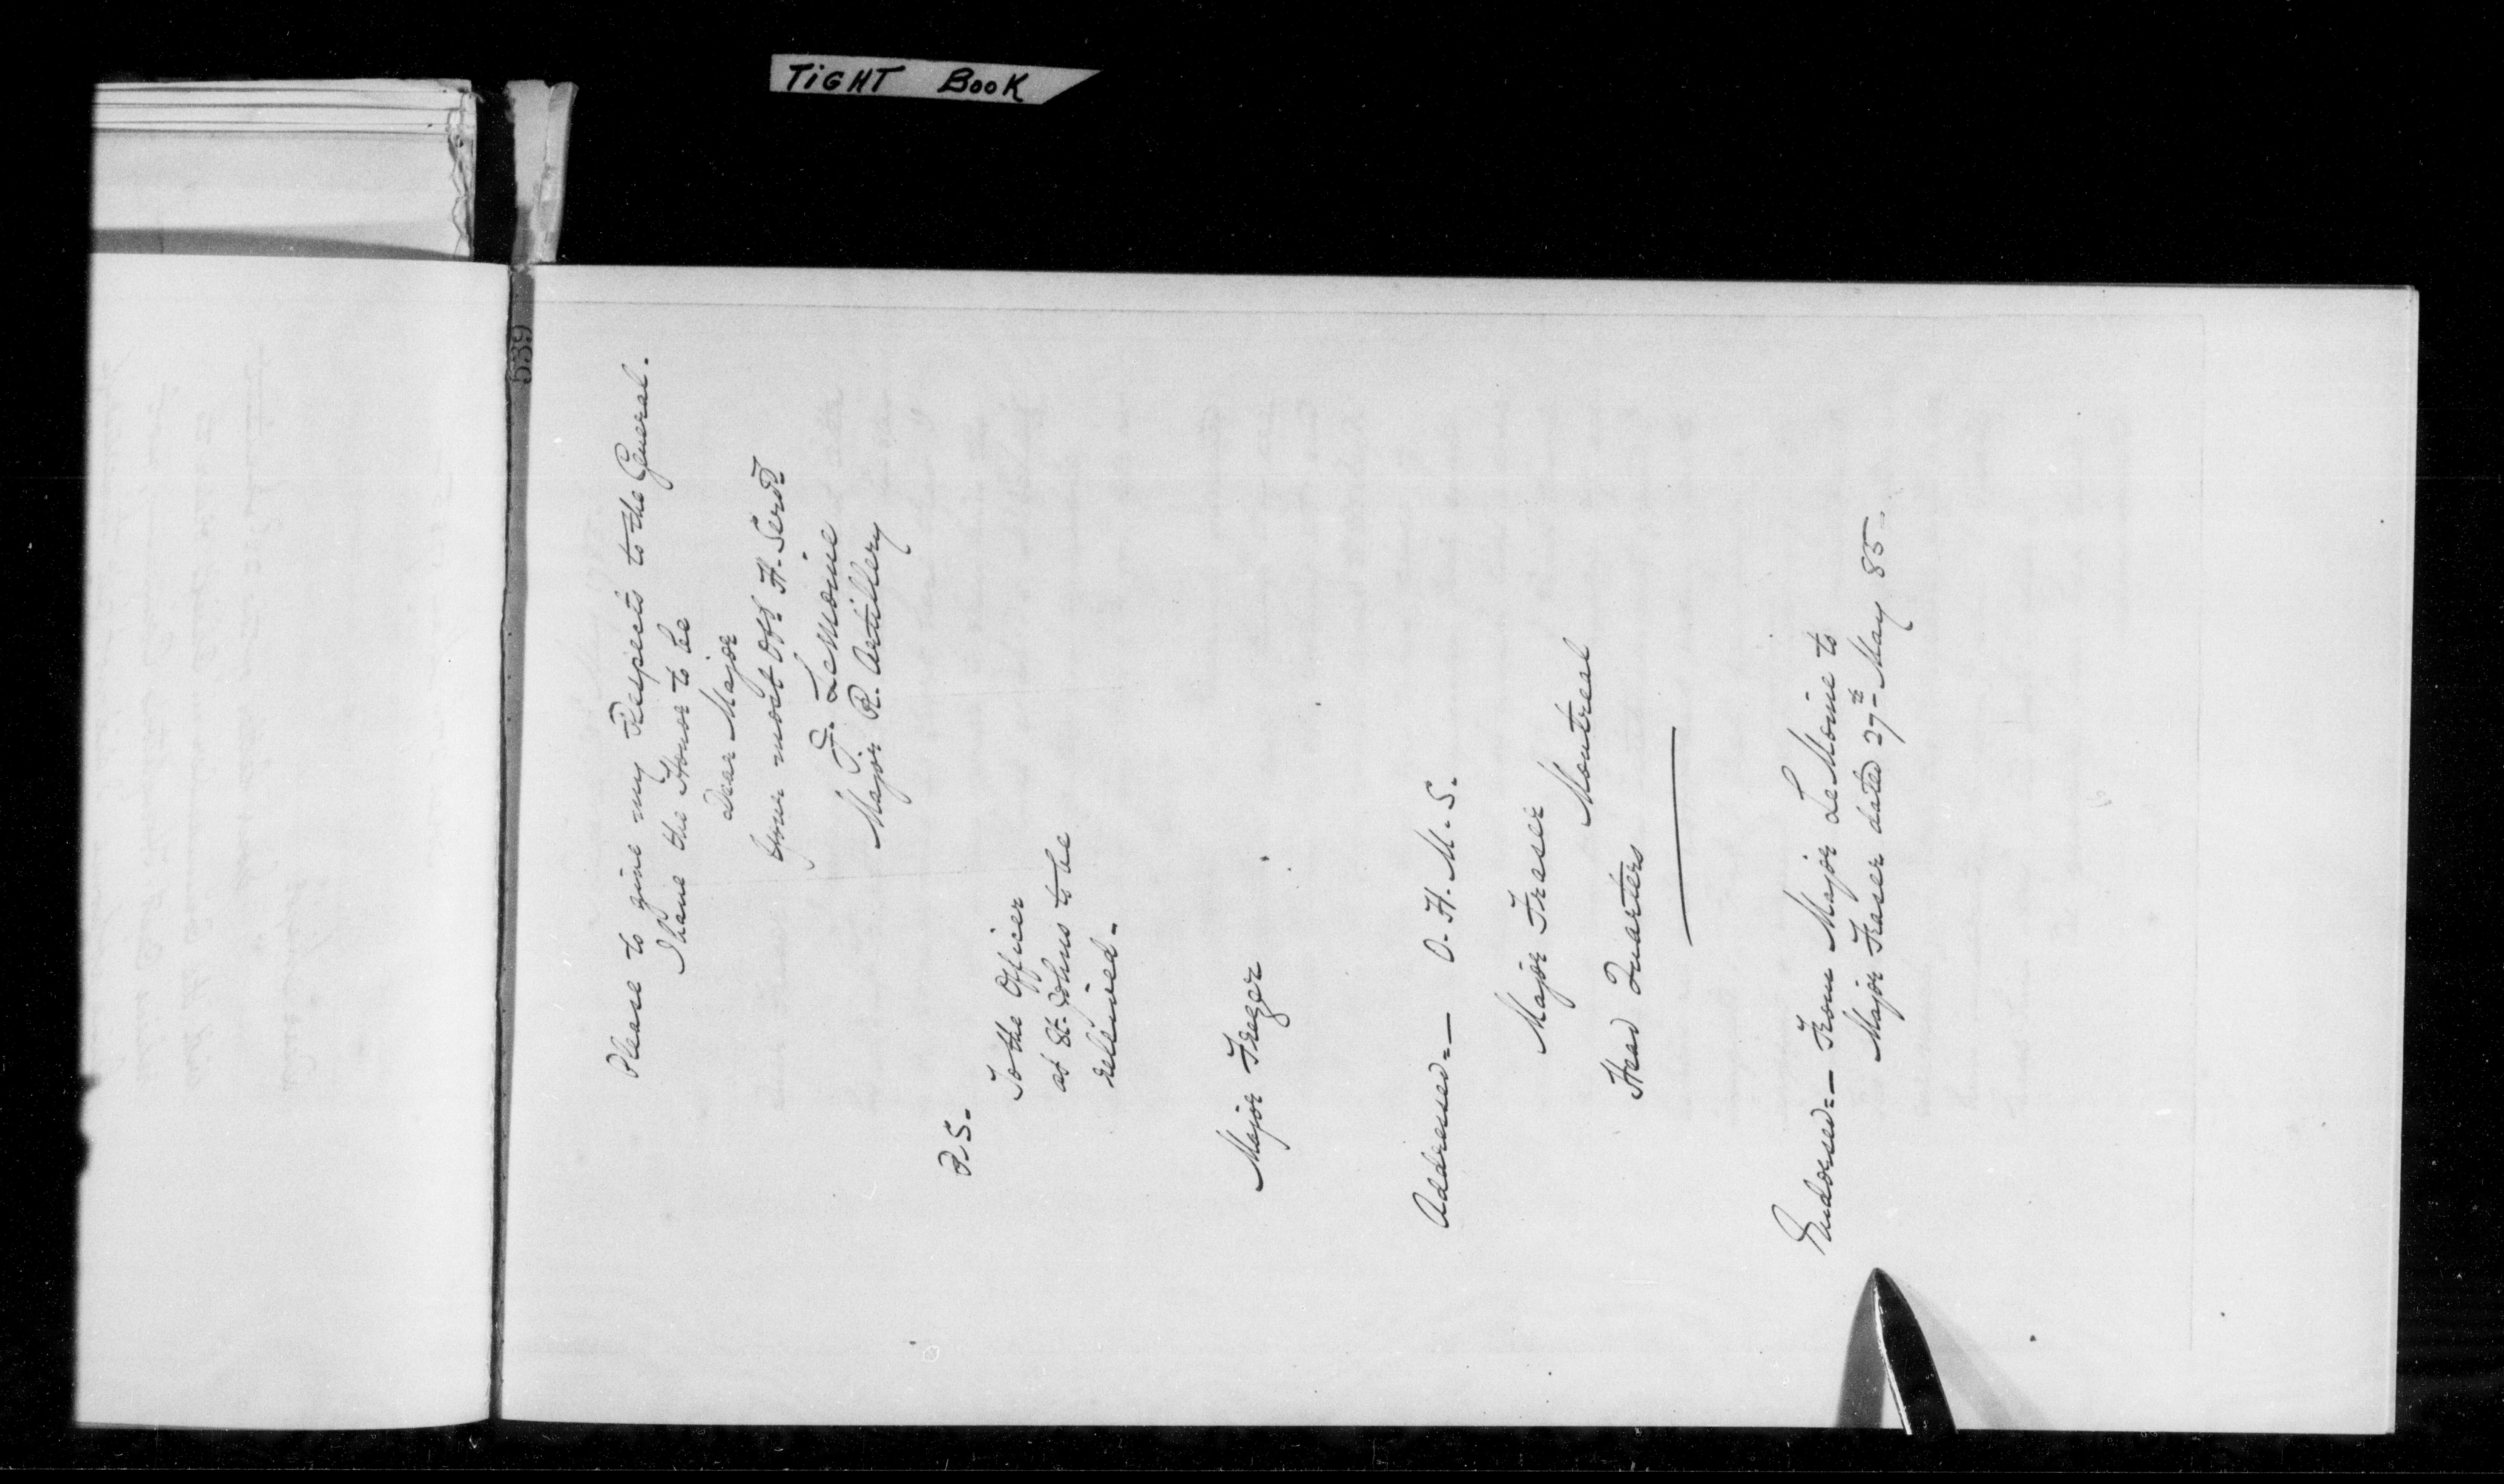 TIGHT BOOK
539
Please to give my Respects to the General.
I have the Honor to be
Dear Major
Your most Obt H. Servt
F. LeMoine
Major R. Artillery
P.S.
To the Officer
at St. Johns to be
relieved.
Major Frezer
Addressed:— O. H. M. S.
Major Fraser
Head Quarters Montreal
Endorsed:— From Major Le Moine to
Major Fraser dated 27th May 85—